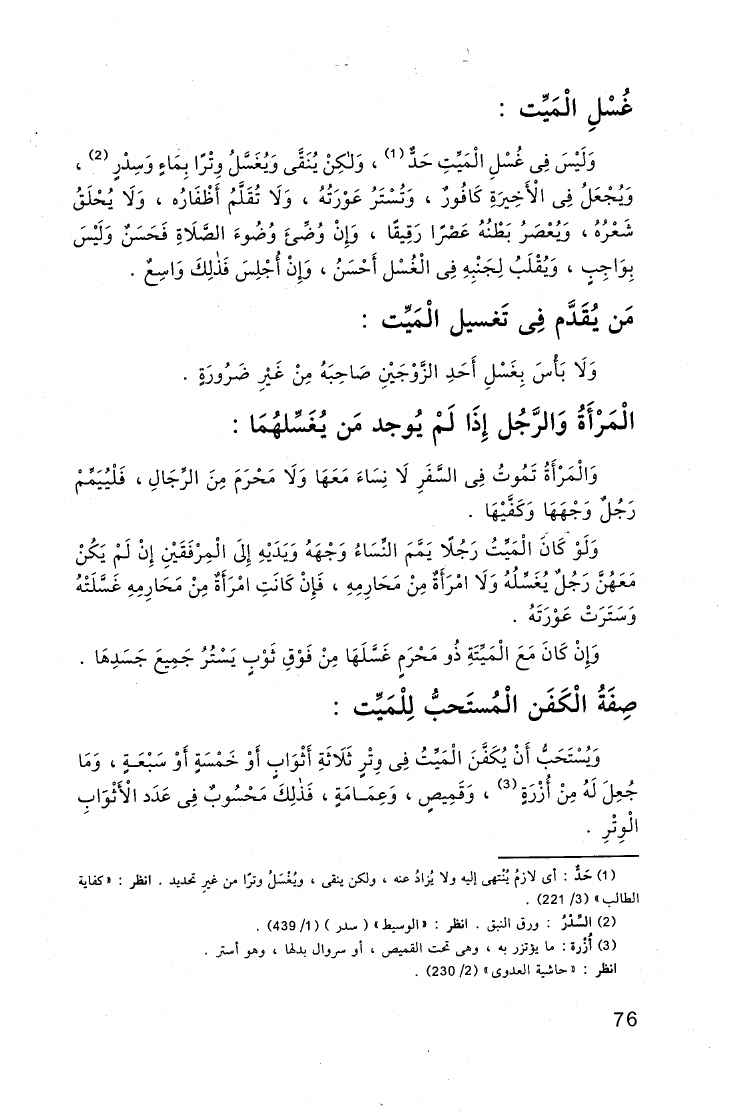 غُسْلِ الْمَيِّت :
وَلَيْسَ فِى غُسْلِ الْمَيِّتِ حَدٌّ (1) ، وَلٰكِنْ يُنَقَّى وَيُغَسَّلُ وِتْرًا بِمَاءٍ وَسِدْرٍ (2) ،
وَيُجْعَلُ فِى الْأَخِيرَةِ كَافُورٌ ، وَتُسْتَرُ عَوْرَتُهُ ، وَلَا تُقَلَّمُ أَظْفَارُه ، وَلَا يُحْلَقُ
شَعْرُهُ ، وَيُعْصَرُ بَطْنُهُ عَصْرًا رَقِيقًا ، وَإِنْ وُضِّئَ وُضُوءَ الصَّلَاةِ فَحَسَنٌ وَلَيْسَ
بِوَاجِبٍ ، وَيُقْلَبُ لِجَنْبِهِ فِى الْغُسْلِ أَحْسَنُ ، وَإِنْ أُجْلِسَ فَذٰلِكَ وَاسِعٌ .
مَن يُقَدَّم فِى تَغسيل الْمَيِّت :
وَلَا بَأْسَ بِغَسْلِ أَحَدِ الزَّوْجَيْنِ صَاحِبَهُ مِنْ غَيْرِ ضَرُورَةٍ .
الْمَرْأَةُ وَالرَّجُل إِذَا لَمْ يُوجد مَن يُغَسِّلهُمَا :
وَالْمَرْأَةُ تَمُوتُ فِى السَّفَرِ لَا نِسَاءَ مَعَهَا وَلَا مَحْرَمَ مِنَ الرِّجَالِ ، فَلْيُيَمِّمْ
رَجُلٌ وَجْهَهَا وَكَفَّيْهَا .
وَلَوْ كَانَ الْمَيِّتُ رَجُلًا يَمَّمَ النِّسَاءُ وَجْهَهُ وَيَدَيْهِ إِلَى الْمِرْفَقَيْنِ إِنْ لَمْ يَكُنْ
مَعَهُنَّ رَجُلٌ يُغَسِّلُهُ وَلَا امْرَأَةٌ مِنْ مَحَارِمِهِ ، فَإِنْ كَانَتِ امْرَأَةٌ مِنْ مَحَارِمِهِ غَسَّلَتْهُ
وَسَتَرَتْ عَوْرَتَهُ .
وَإِنْ كَانَ مَعَ الْمَيِّتَةِ ذُو مَحْرَمٍ غَسَّلَهَا مِنْ فَوْقِ ثَوْبٍ يَسْتُرُ جَمِيعَ جَسَدِهَا .
صِفَةُ الْكَفَن الْمُستَحبُّ لِلْمَيِّت :
وَيُسْتَحَبُّ أَنْ يُكَفَّنَ الْمَيِّتُ فِى وِتْرٍ ثَلَاثَةِ أَثْوَابٍ أَوْ خَمْسَةٍ أَوْ سَبْعَـةٍ ، وَمَا
جُعِلَ لَهُ مِنْ أُزْرَةٍ (3) ، وَقَمِيصٍ ، وَعِمَـامَةٍ ، فَذٰلِكَ مَحْسُوبٌ فِى عَدَدِ الْأَثْوَابِ
الْوِتْرِ .
(1) حَدٌّ : أى لازمٌ يُنْتهى إليه ولا يُزادُ عنه ، ولكن ينقى ، ويُغْسَلُ وترًا من غير تحديد . انظر : «كفاية
الطالب» (3/ 221) .
(2) السِّدْرُ : ورق النبق . انظر : «الوسيط» ( سدر ) (1/ 439) .
(3) أُزْرة : ما يؤتزر به ، وهى تحت القميص ، أو سروال بدلها ، وهو أستر .
انظر : «حاشية العدوى» (2/ 230) .
76